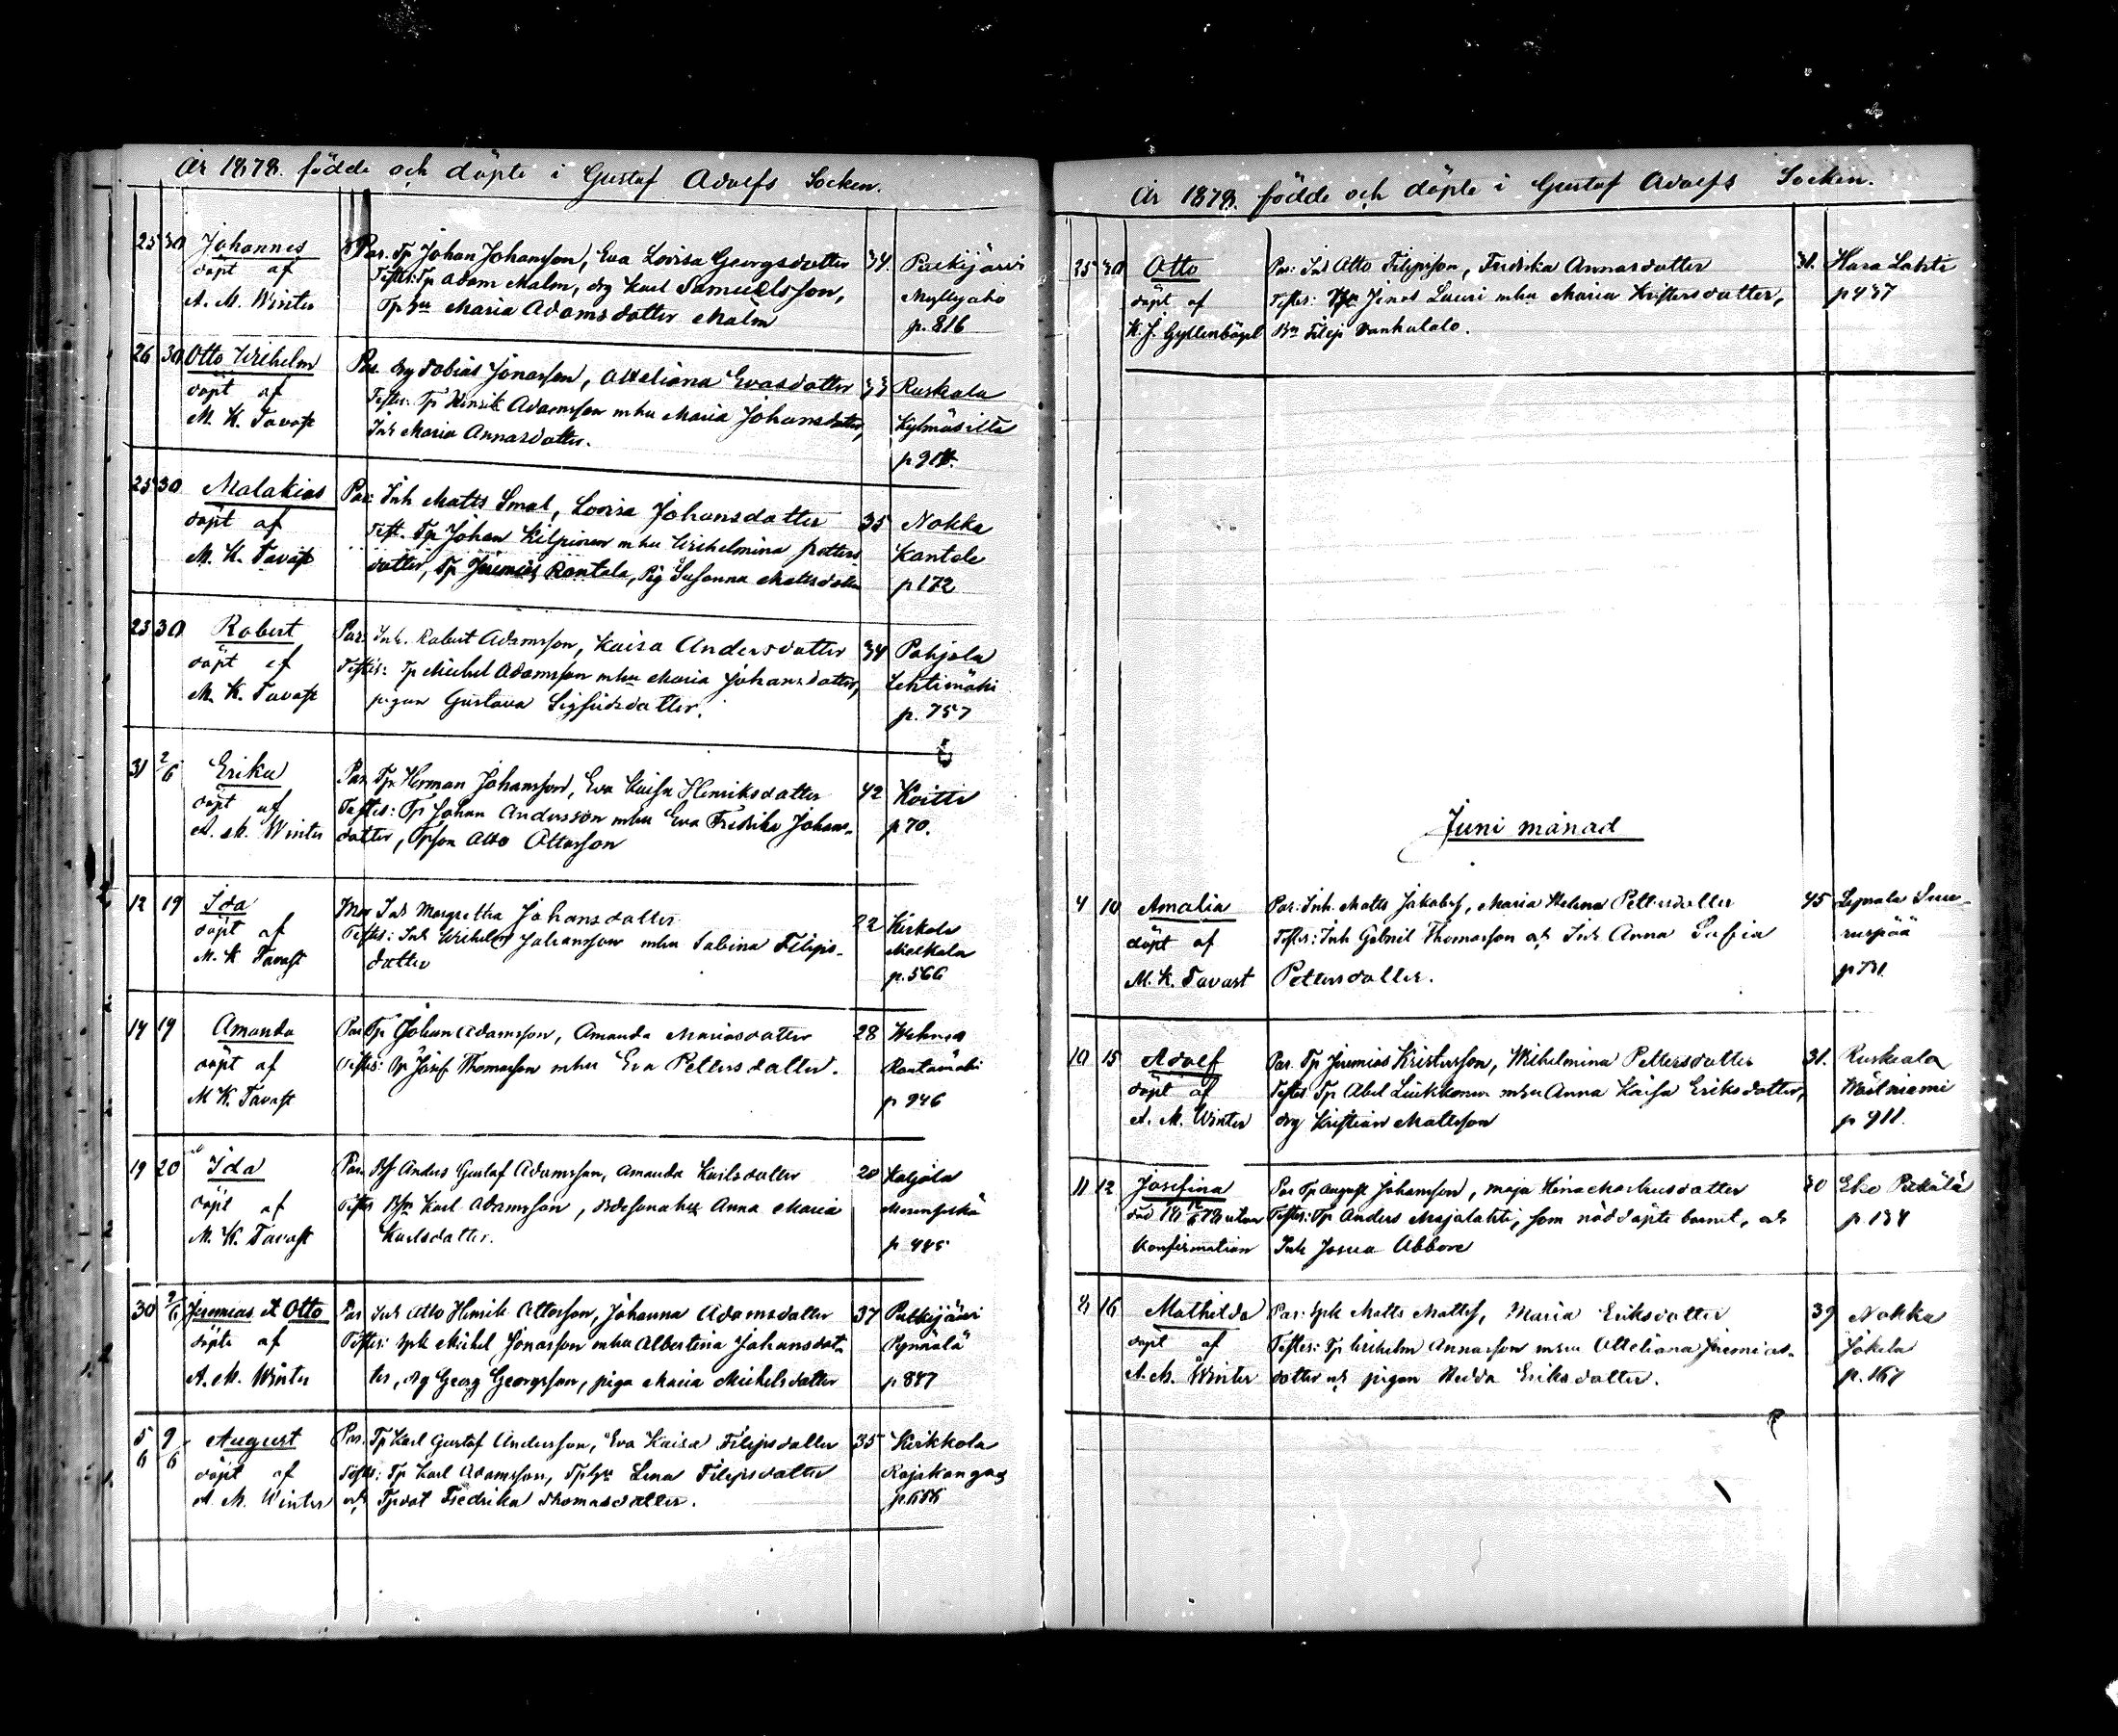 År 1878. födde och döpte i Gustaf Adolfs Socken.
25 30 Johannes Par. Tp Johan Johansson, Eva Lovisa Georgsdotter 34. Palkijärvi
döpt af Testes: Tp Adam Malm, drg Karl Samuelsson, Myllyaho
A. M. Winter Tp hu Maria Adamsdotter Malm p. 816
26 30 Otto Wilhelm Par. drg Tobias Jonasson, Otteliana Evasdotter 33 Ruskala
döpt af Testes: Tp Henrik Adamsson mhu Maria Johansdotter, Kylmäsilta
M. K. Tavast Inh Maria Annasdotter.
25 30 Malakias Par: Inh Matts Smal, Lovisa Johansdotter 35 Nokka
döpt af Test. Tp Johan Kilpinen mhu Wilhelmina Petters Kantele
M. K. Tavast dotter, Tp Jeremias Rantala, Pig Susanna Mattsdotter p 172
23 30 Robert Par: Inh. Robert Adamsson, Kaisa Andersdotter 34 Pohjola
döpt af Testes: Tp Michel Adamsson mhu Maria Johansdotter, Lehtimäki
M. K. Tavast pigan Gustava Sigfridsdotter. p. 757
31 2/6 Erika Par. Tp Herman Johansson, Eva Kaisa Henriksdotter 42 Koitti
döpt af Testes: Tp Johan Andersson mhu Eva Fredrika Johans- p 70.
A. M. Winter dotter, Tpson Otto Ottosson
12 19 Ida Mor Inh Margretha Johansdotter 22 Kirkola
döpt af Testes: Inh Wilhelm Johansson mhu Sabina Filips- Matkala
M. K Tavast dotter p. 566
14 19 Amanda Par Tp Johan Adamsson, Amanda Mariasdotter 28 Wehmas
döpt af Testes: Tp Josef Thomasson mhu Eva Pettersdotter. Rautamäki
M K. Tavast p 946
19 20 Ida Par. Anders Gustaf Adamsson, Amanda Karlsdotter 20 Kaljola
döpt af Testes Karl Adamsson, Anna Maria
M. K. Tavast Karlsdotter. p 485
30 2/6 Jeremias et Otto Par Inh Otto Henrik Ottosson, Johanna Adamsdotter 37 Palkijärvi
döpte af Testes: spk Michel Jonasson mhu Albertina Johansdot- Pynnälä
A. M. Winter ter, drg Georg Georgsson, piga Maria Michelsdotter p 887
5/6 9/6 August Par. Tp Karl Gustaf Andersson, Eva Kaisa Filipsdotter 35 Kirkkola
döpt af Testes: Tp Karl Adamsson, Tphu Lena Filipsdotter Rajakangas
A. M. Winter och Tpdot Fredrika Thomasdotter.
År 1878. födde och döpte i Gustaf Adolfs Socken.
25 30 Otto Par: Inh Otto Filipsson, Fredrika Annasdotter 31. Hara Lahti
döpt af Testes: Jonas Lauri mhu Maria Kristersdotter, p 437
K. J. Gyllenbögel Bn Filip Vanhatalo.
Juni månad
4 10 Amalia Par: Inh. Matts Jakobss, Maria Helena Pettersdotter 45
döpt af Testes: Inh Gabriel Thomasson och Inh Anna Sofia
M. K. Tavast Pettersdotter.
10 15 Adolf Par. Tp Jeremias Kristersson, Wilhelmina Pettersdotter 31. Ruskeala
döpt af Testes Tp Abel Liukkonen mhu Anna Kaisa Eriksdotter,
A. M. Winter drg Kristian Mattsson p 911.
11 12 Josefina Par Tp August Johansson, Maja Stina Markusdotter 30 Eko Pekälä
död 12/6 78 utan Testes: Tp Anders Majalahti, som nöddöpte barnet, och p. 134
konfirmation Inh Josua Abbore
8 16 Mathilda Par: spk Matts Mattss, Maria Eriksdotter 39 Nokka
döpt af Testes: Tp Wilhelm Annasson mhu Otteliana Jeremias- Jokela
A. M. Winter dotter och pigan Hedda Eriksdotter. p. 167